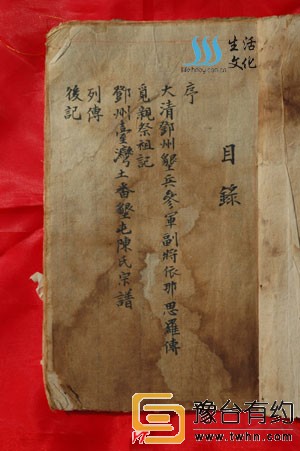 生活
文化
目錄
序
大清鄧州墾兵參軍副將依那思羅傳
覓親祭祖記
鄧州臺灣土番墾屯陳氏宗譜
列傳
後記
豫台有约
www.twhn.com